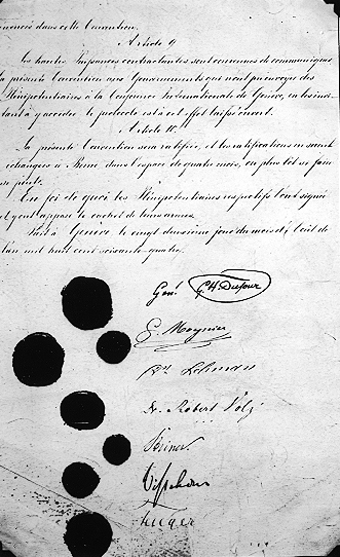 énoncés dans cette Convention.
Article 9
Les hautes Puissances contractantes sont convenues de communiquer
la présente Convention aux Gouvernements qui n'ont pu envoyer des
Plénipotentiaires à la Conférence Internationale de Genève, en les invi-
tant à y accéder, le protocole est à cet effet laissé ouvert.
Article 10.
La présente Convention sera ratifiée, et les ratifications en seront
échangées à Berne, dans l'espace de quatre mois, ou plus tôt si faire
se peut.
En foi de quoi les Plénipotentiaires respectifs l'ont signée
et y ont apposé le cachet de leurs armes.
Fait à Genève le vingt deuxième jour du mois d'Août de
l'an mil huit cent soixante-quatre.
Genl. G. H. Dufour
G. Moynier
Dr. Lehmann
Dr. Robert Volz
Steiner.
Visschers